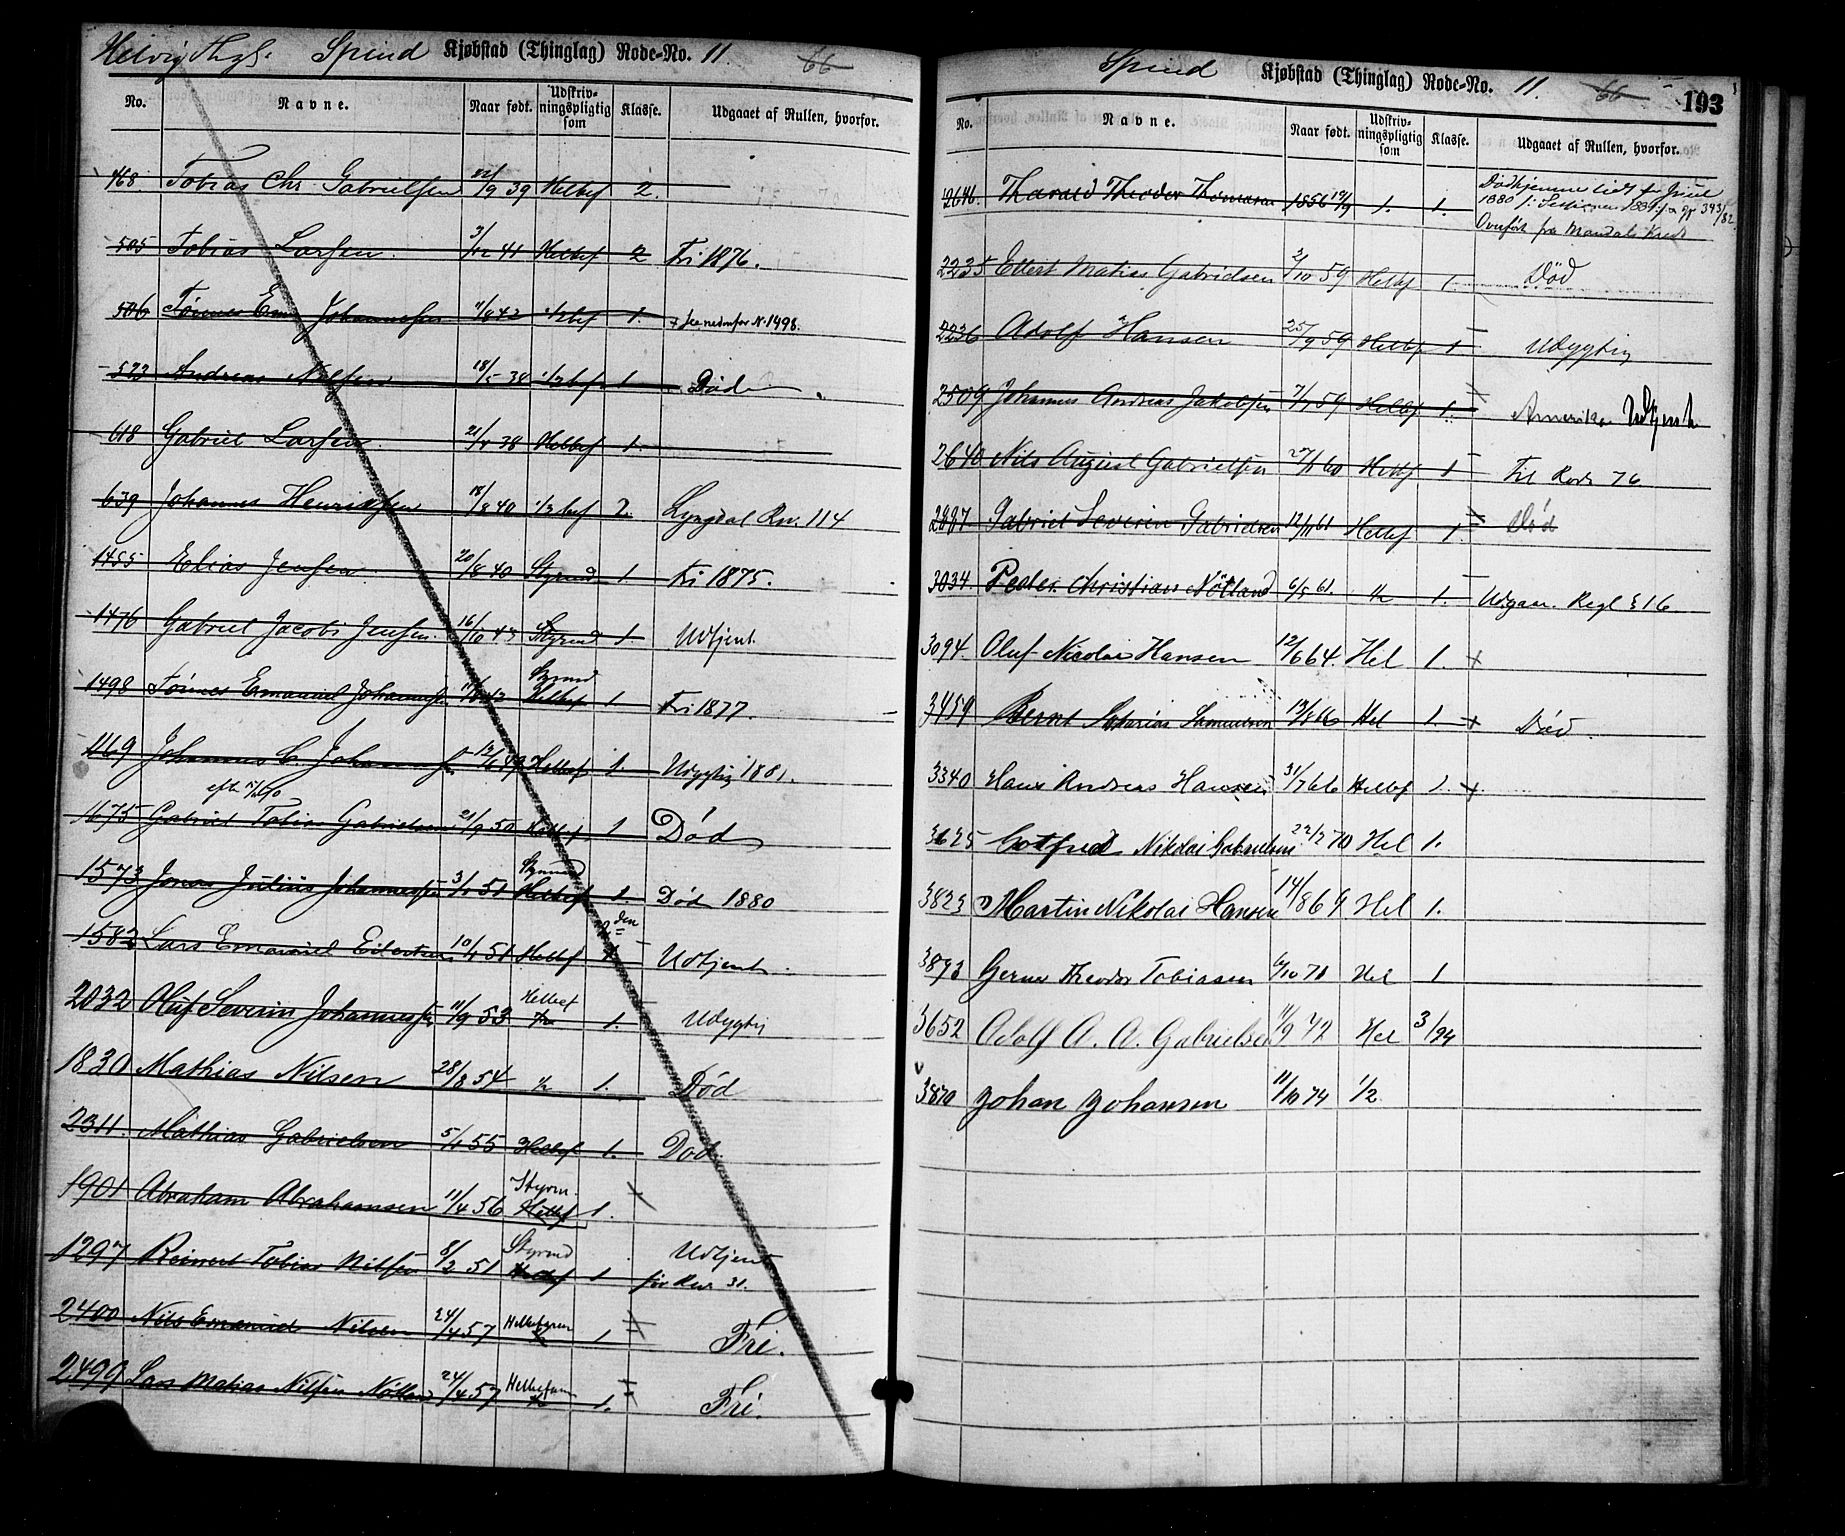 Spind Kjøbstad (Thinglag) Rode-No. 11 66
No. Navne. Naar født. Udskrivningspligtig som Klasse. Udgaaet af Rullen, hvorfor.
468. Tobias Chr. Gabrielsen 22/9 39 Helbef 2.
505 Tobias Larsen 3/12 41 Helbef 2 Fri 1876.
506 Tønnes Em. Johannesen 11/8 42 1/2 bef 1. N. 1498.
523 Andreas Nilsen 18/5 38 1/2 bef 1 Død
618 Gabriel Larsen 21/5 38 Helbef 1.
639 Johannes Henriksen 18/8 40 1/2 bef 2. Lyngdal Rn. 114
1455 Elias Jensen 20/8 40 Styrmd 1. Fri 1875.
1476 Gabriel Jacobs Jensen 16/10 43 Styrmd 1. Udtjent.
1498 Tønnes Emanuel Johannesen 11/8 42 Styrmd Helbef 1 Fri 1877.
1169 Johannes C. Johannesen 12/6 49 Helbef 1. Udygtig 1881.
1675 Gabriel Tobias Gabrielsen 21/9 50 Helbef 1 Død
1573 Jonas Julius Johannessen 3/1 51 Styrmd Helbef 1. Død 1880
1582 Lars Emanuel Eilertsen 10/4 51 Helbef Udtjent.
2032 Oluf Severin Johannessen 11/9 53 Helbef 1/2 1. Udygtig
1830 Mathias Nilsen 28/8 54 1/2 1. Død
2311. Mathias Gabrielsen 5/1 55 Helbef 1. Død
1901 Abraham Abrahamsen 11/4 56 Styrm. Helbef 1.
1297 Reinert Tobias Nilsen 8/2 51 Styrmd Helbef 1 Udtjent
for Rnr 31.
2400 Nils Emanuel Nilsen 24/4 57 1/2 1 Fri.
2499 Lars Matias Nilsen Nötland 24/4 57 1/2 1. Fri.
Spind Kjøbstad (Thinglag) Rode-No. 11. 66 193
No. Navne. Naar født. Udskrivningspligtig som Klasse. Udgaaet af Rullen, hvorfor.
2646. Tharald Theodor Thomasen 1856 19/9 1. 1.
Overført fra Mandals Kreds
2235 Eilert Matias Gabrielsen 2/10 59 Helbf 1. Død
2236 Adolf Hansen 25/9 59 Helbf 1 Udygtig
2509 Johannes Andreas Jakobsen 7/7 59 Helbf 1. Amerika Udtjent
2640 Nils August Gabrielsen 27/1 60 Helbf 1 Til Rode 76
2887. Gabriel Severin Gabrielsen 12/11 61 Helbf 1. Død
3034. Peder Christian Nötland 6/5 61. 1/2 1. Udgaar. Regl § 16
3094. Oluf Nicolai Hansen 12/6 64. Hel 1. x
3459 Bernt Samuelsen 13/8 66 Hel 1. x Død.
3340 Hans Andreas Hansen 31/7 66 Helbf 1. x
3625 Gotfred Nikolai Gabrielsen 22/2 70 Hel 1.
3825 Martin Nikolai Hansen 14/8 69 Hel 1.
3893 Gerner Theodor Tobiasen 6/10 71 Hel 1
3652 Adolf A. A. Gabrielsen 11/9 72 Hel 3/24
3870 Johan Johansen 11/10 74 1/2.